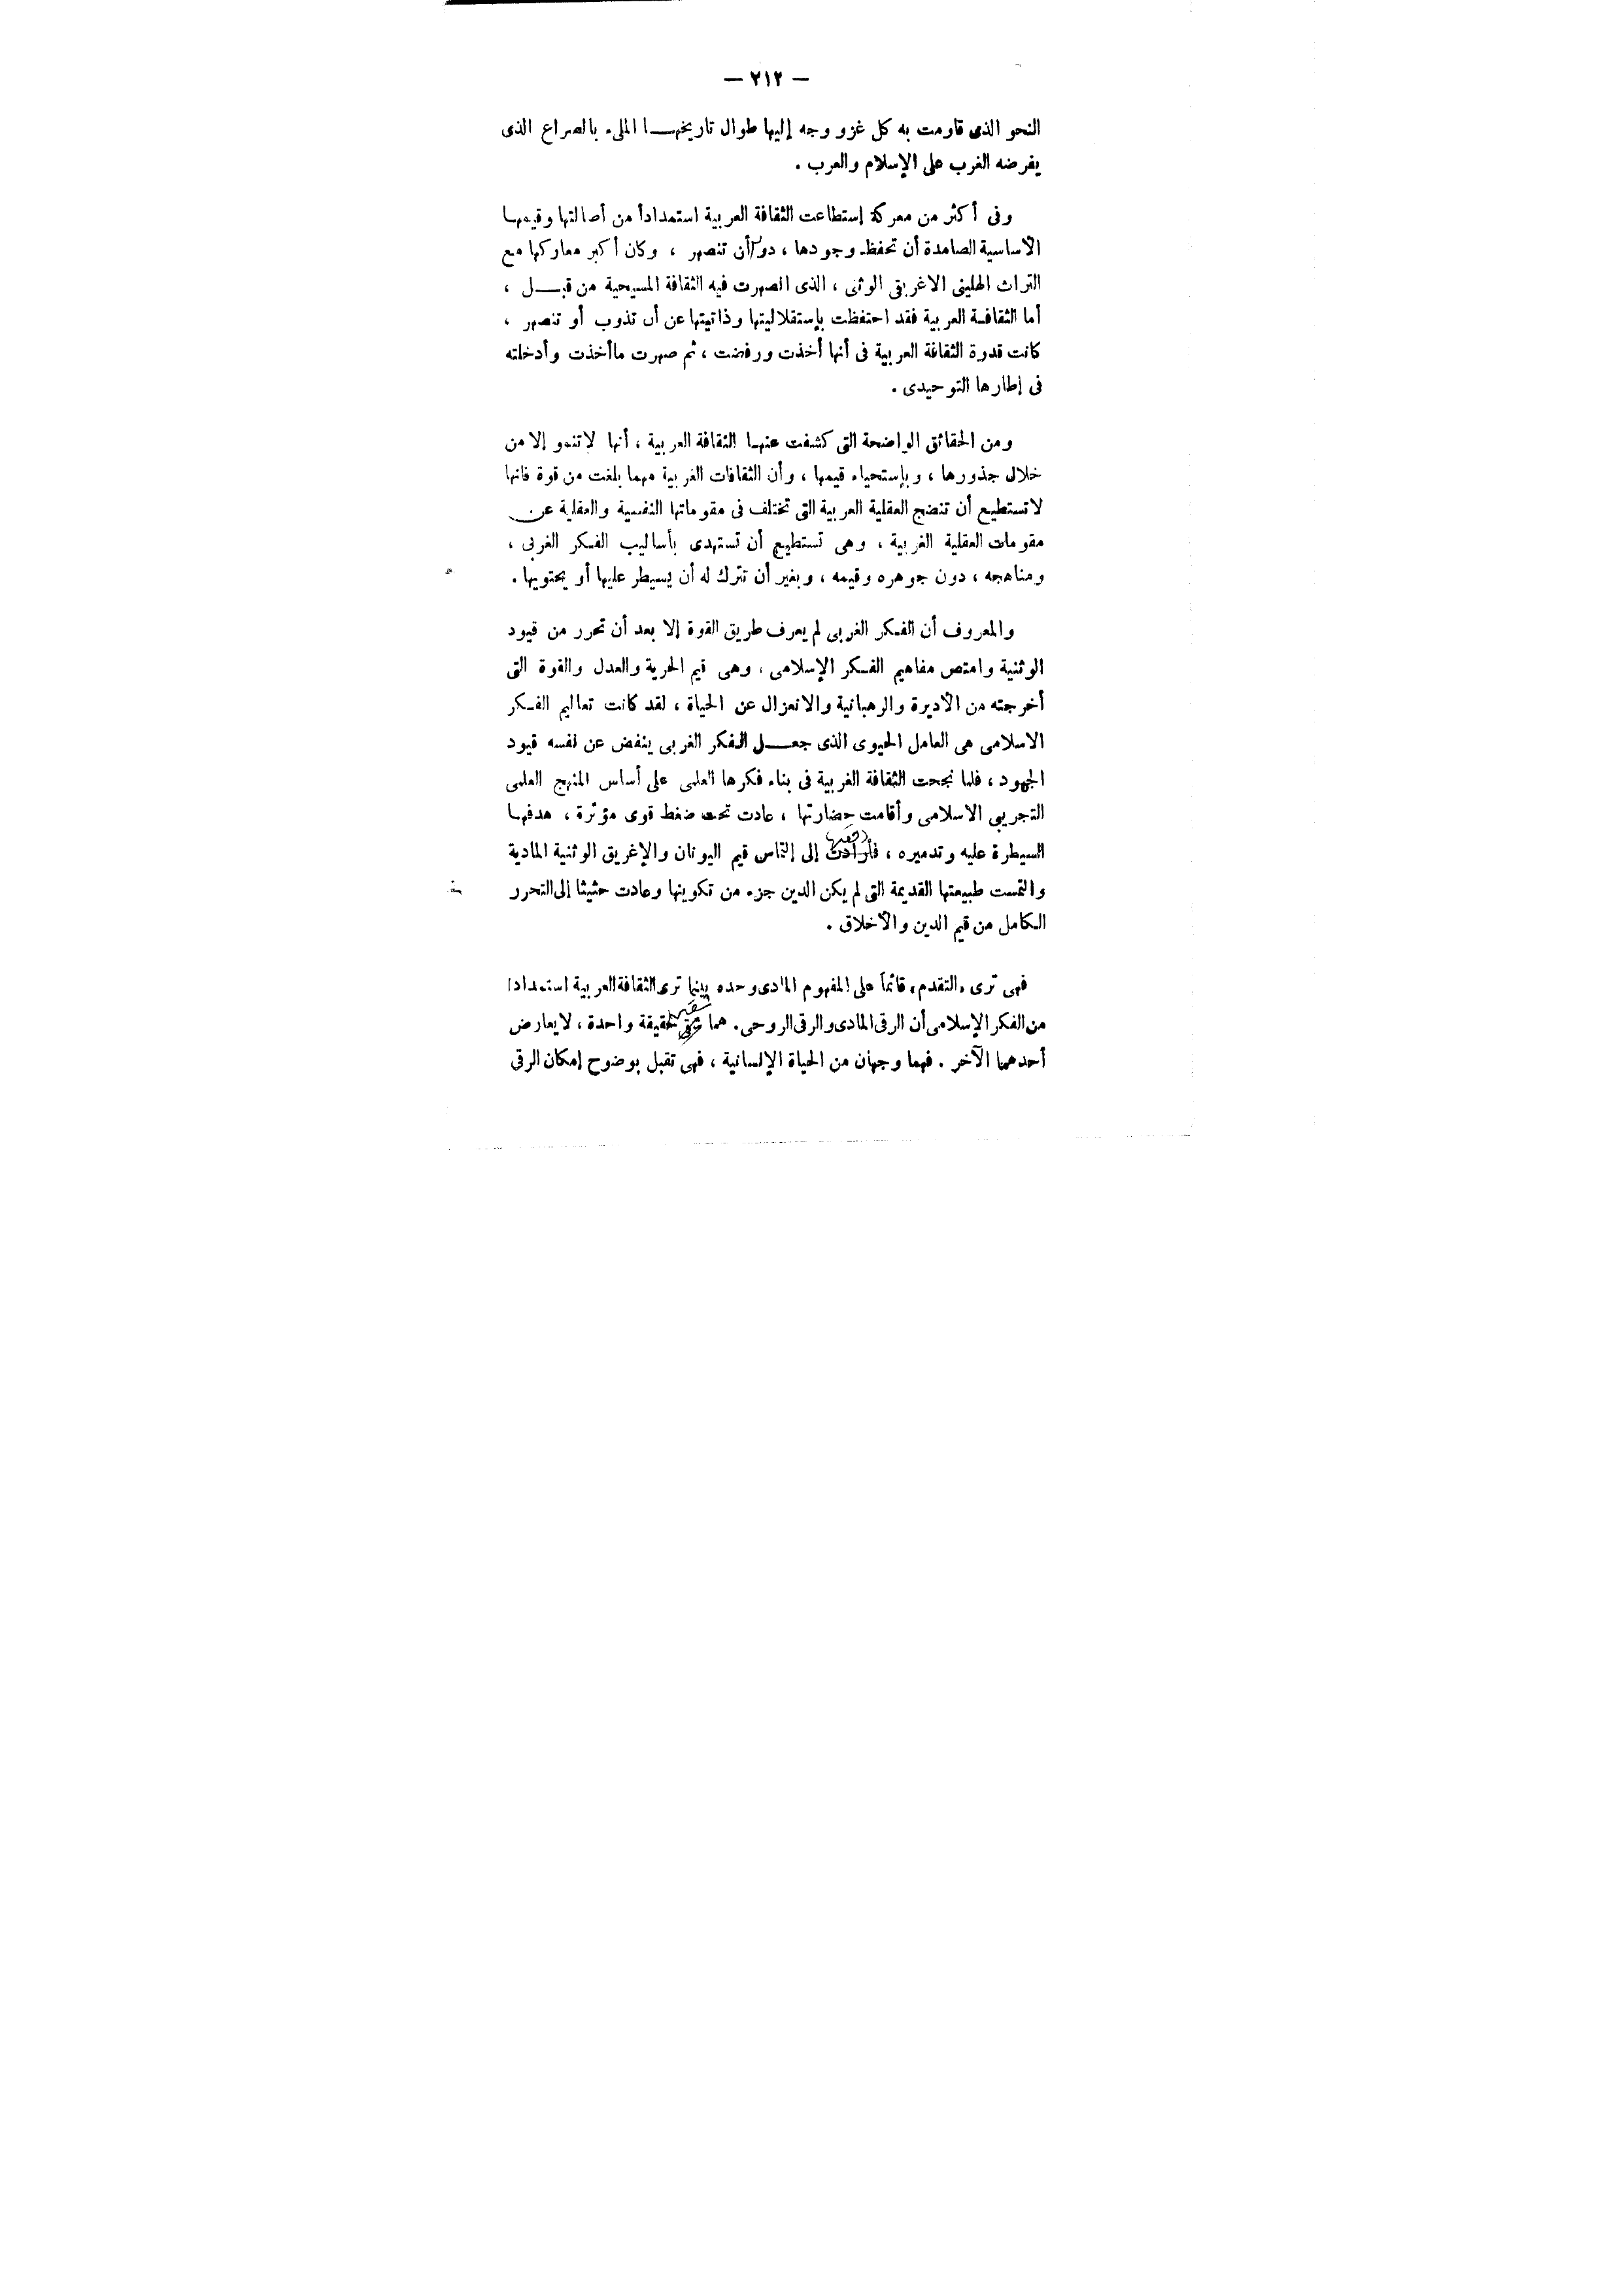 — ٢١٢ —
النحو الذى قاومت به كل غزو وجه إليها طوال تاريخهـــا الملىء بالصراع الذى
يفرضه الغرب على الإسلام والعرب .
وفى أكثر من معركة إستطاعت الثقافة العربية استمداداً من أصالتها وقيمهـا
الأساسية الصامدة أن تحفظ وجودها ، دون أن تنصهر ، وكان أكبر معاركها مع
التراث الهلينى الاغريقى الوثنى ، الذى انصهرت فيه الثقافة المسيحية من قبـــل ،
أما الثقافـة العربية فقد احتفظت بإستقلاليتها وذاتيتها عن أن تذوب أو تنصهر ،
كانت قدرة الثقافة العربية فى أنها أخذت ورفضت ، ثم صهرت ماأخذت وأدخلته
فى إطارها التوحيدى .
ومن الحقائق الواضحة التى كشفت عنهـا الثقافة العربية ، أنها لاتنمو إلا من
خلال جذورها ، وبإستحياء قيمها ، وأن الثقافات الغربية مهما بلغت من قوة فانها
لاتستطيـع أن تنضج العقلية العربية التى تختلف فى مقوماتها النفسية والعقلية عن
مقومات العقلية الغربية ، وهى تستطيع أن تستهدى بأساليب الفـكر الغربى ،
ومناهجه ، دون جوهره وقيمه ، وبغير أن تترك له أن يسيطر عليها أو يحتويها .
والمعروف أن الفـكر الغربى لم يعرف طريق القوة إلا بعد أن تحرر من قيود
الوثنية وامتص مفاهيم الفـكر الإسلامى ، وهى قيم الحرية والعدل والقوة التى
أخرجته من الأديرة والرهبانية والانعزال عن الحياة ، لقد كانت تعاليم الفـكر
الاسلامى هى العامل الحيوى الذى جعـــل الفكر الغربى ينفض عن نفسه قيود
الجهود ، فلما نجحت الثقافة الغربية فى بناء فكرها العلمى على أساس المنهج العلمى
التجريبى الاسلامى وأقامت حضارتها ، عادت تحت ضغط قوى مؤثرة ، هدفهـا
السيطرة عليه وتدميره ، فأرادت إلى إلتماس قيم اليونان والإغريق الوثنية المادية
والتمست طبيعتها القديمة التى لم يكن الدين جزء من تكوينها وعادت حثيثا إلى التحرر
الـكامل من قيم الدين والأخلاق .
فهى ترى «التقدم» قائماً على المفهوم المادى وحده بينما ترى الثقافة العربية استمدادا
من الفكر الإسلامى أن الرقى المادى والرقى الروحى . هما لحقيقة واحدة ، لايعارض
أحدهما الآخر . فهما وجهان من الحياة الإنسانية ، فهى تقبل بوضوح إمكان الرقى